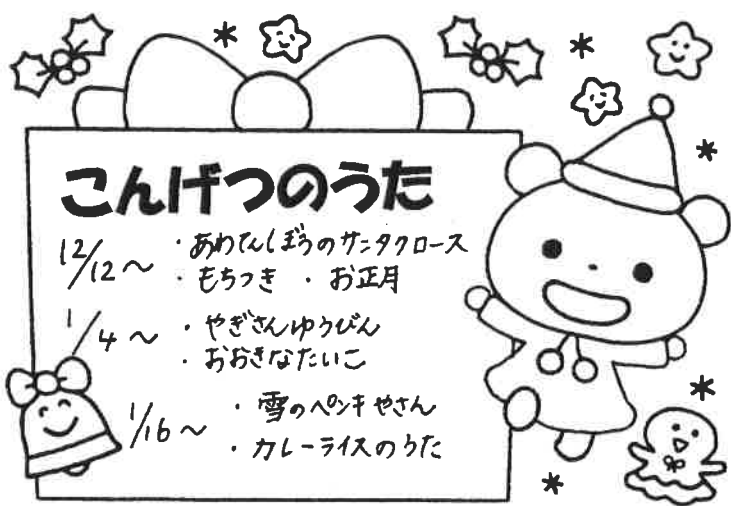 こんげつのうた
12/12～ ・あわてんぼうのサンタクロース
・もちつき ・お正月
1/4～ ・やぎさんゆうびん
・おおきなたいこ
1/16～ ・雪のペンキやさん
・カレーライスのうた